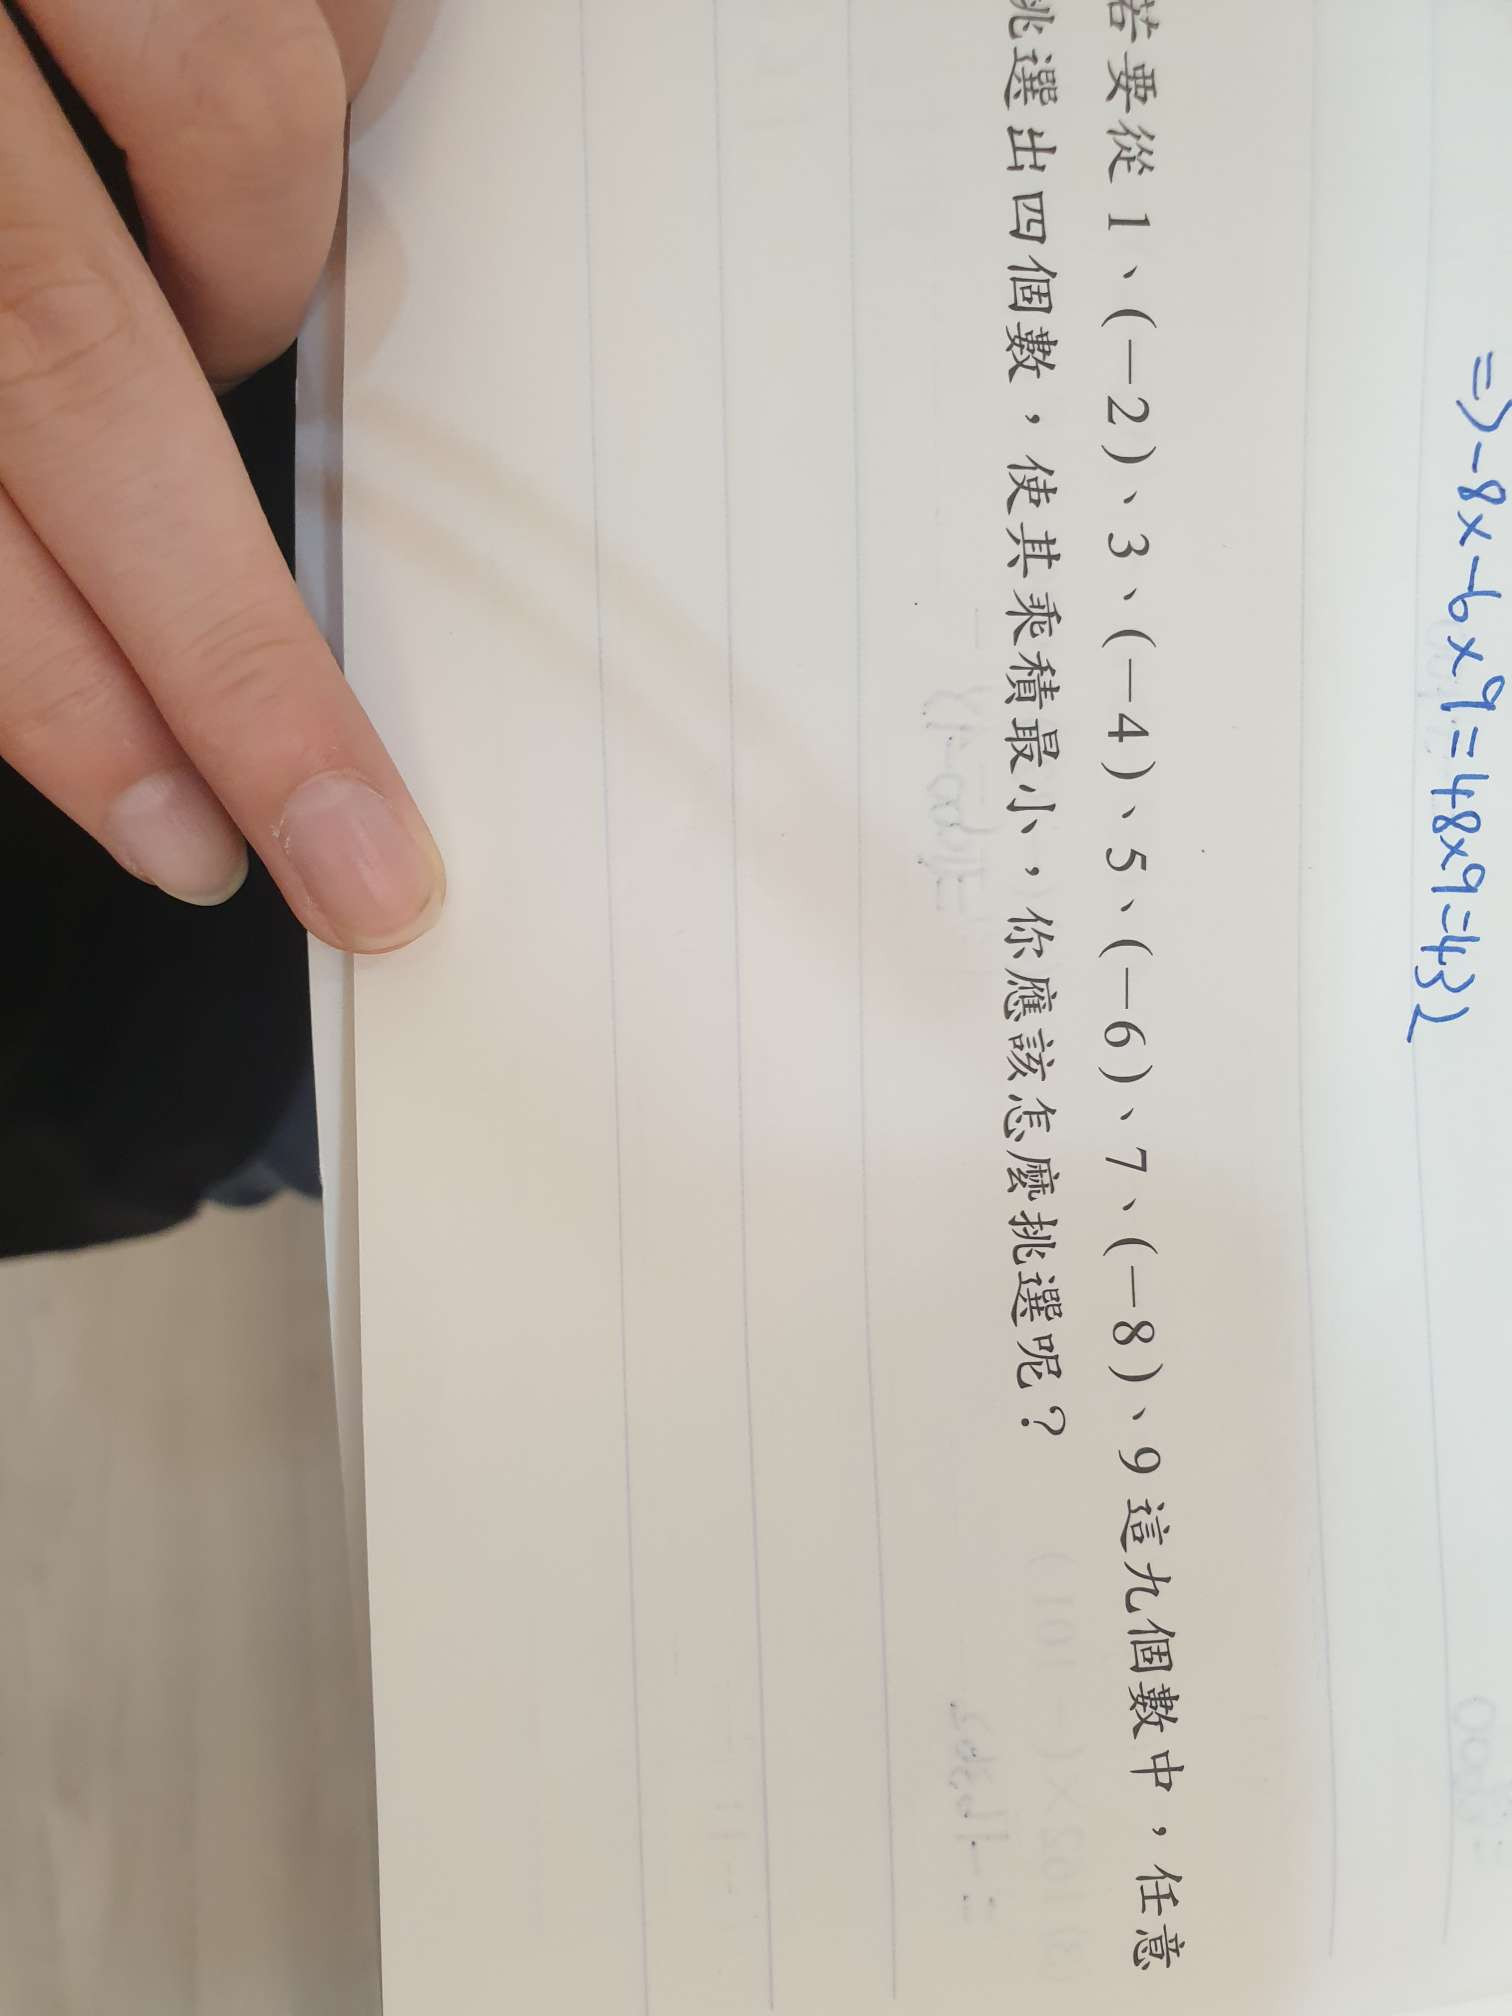 => -8x-6x9=48x9=432
若要從 1、(-2)、3、(-4)、5、(-6)、7、(-8)、9 這九個數中，任意
挑選出四個數，使其乘積最小，你應該怎麼挑選呢？